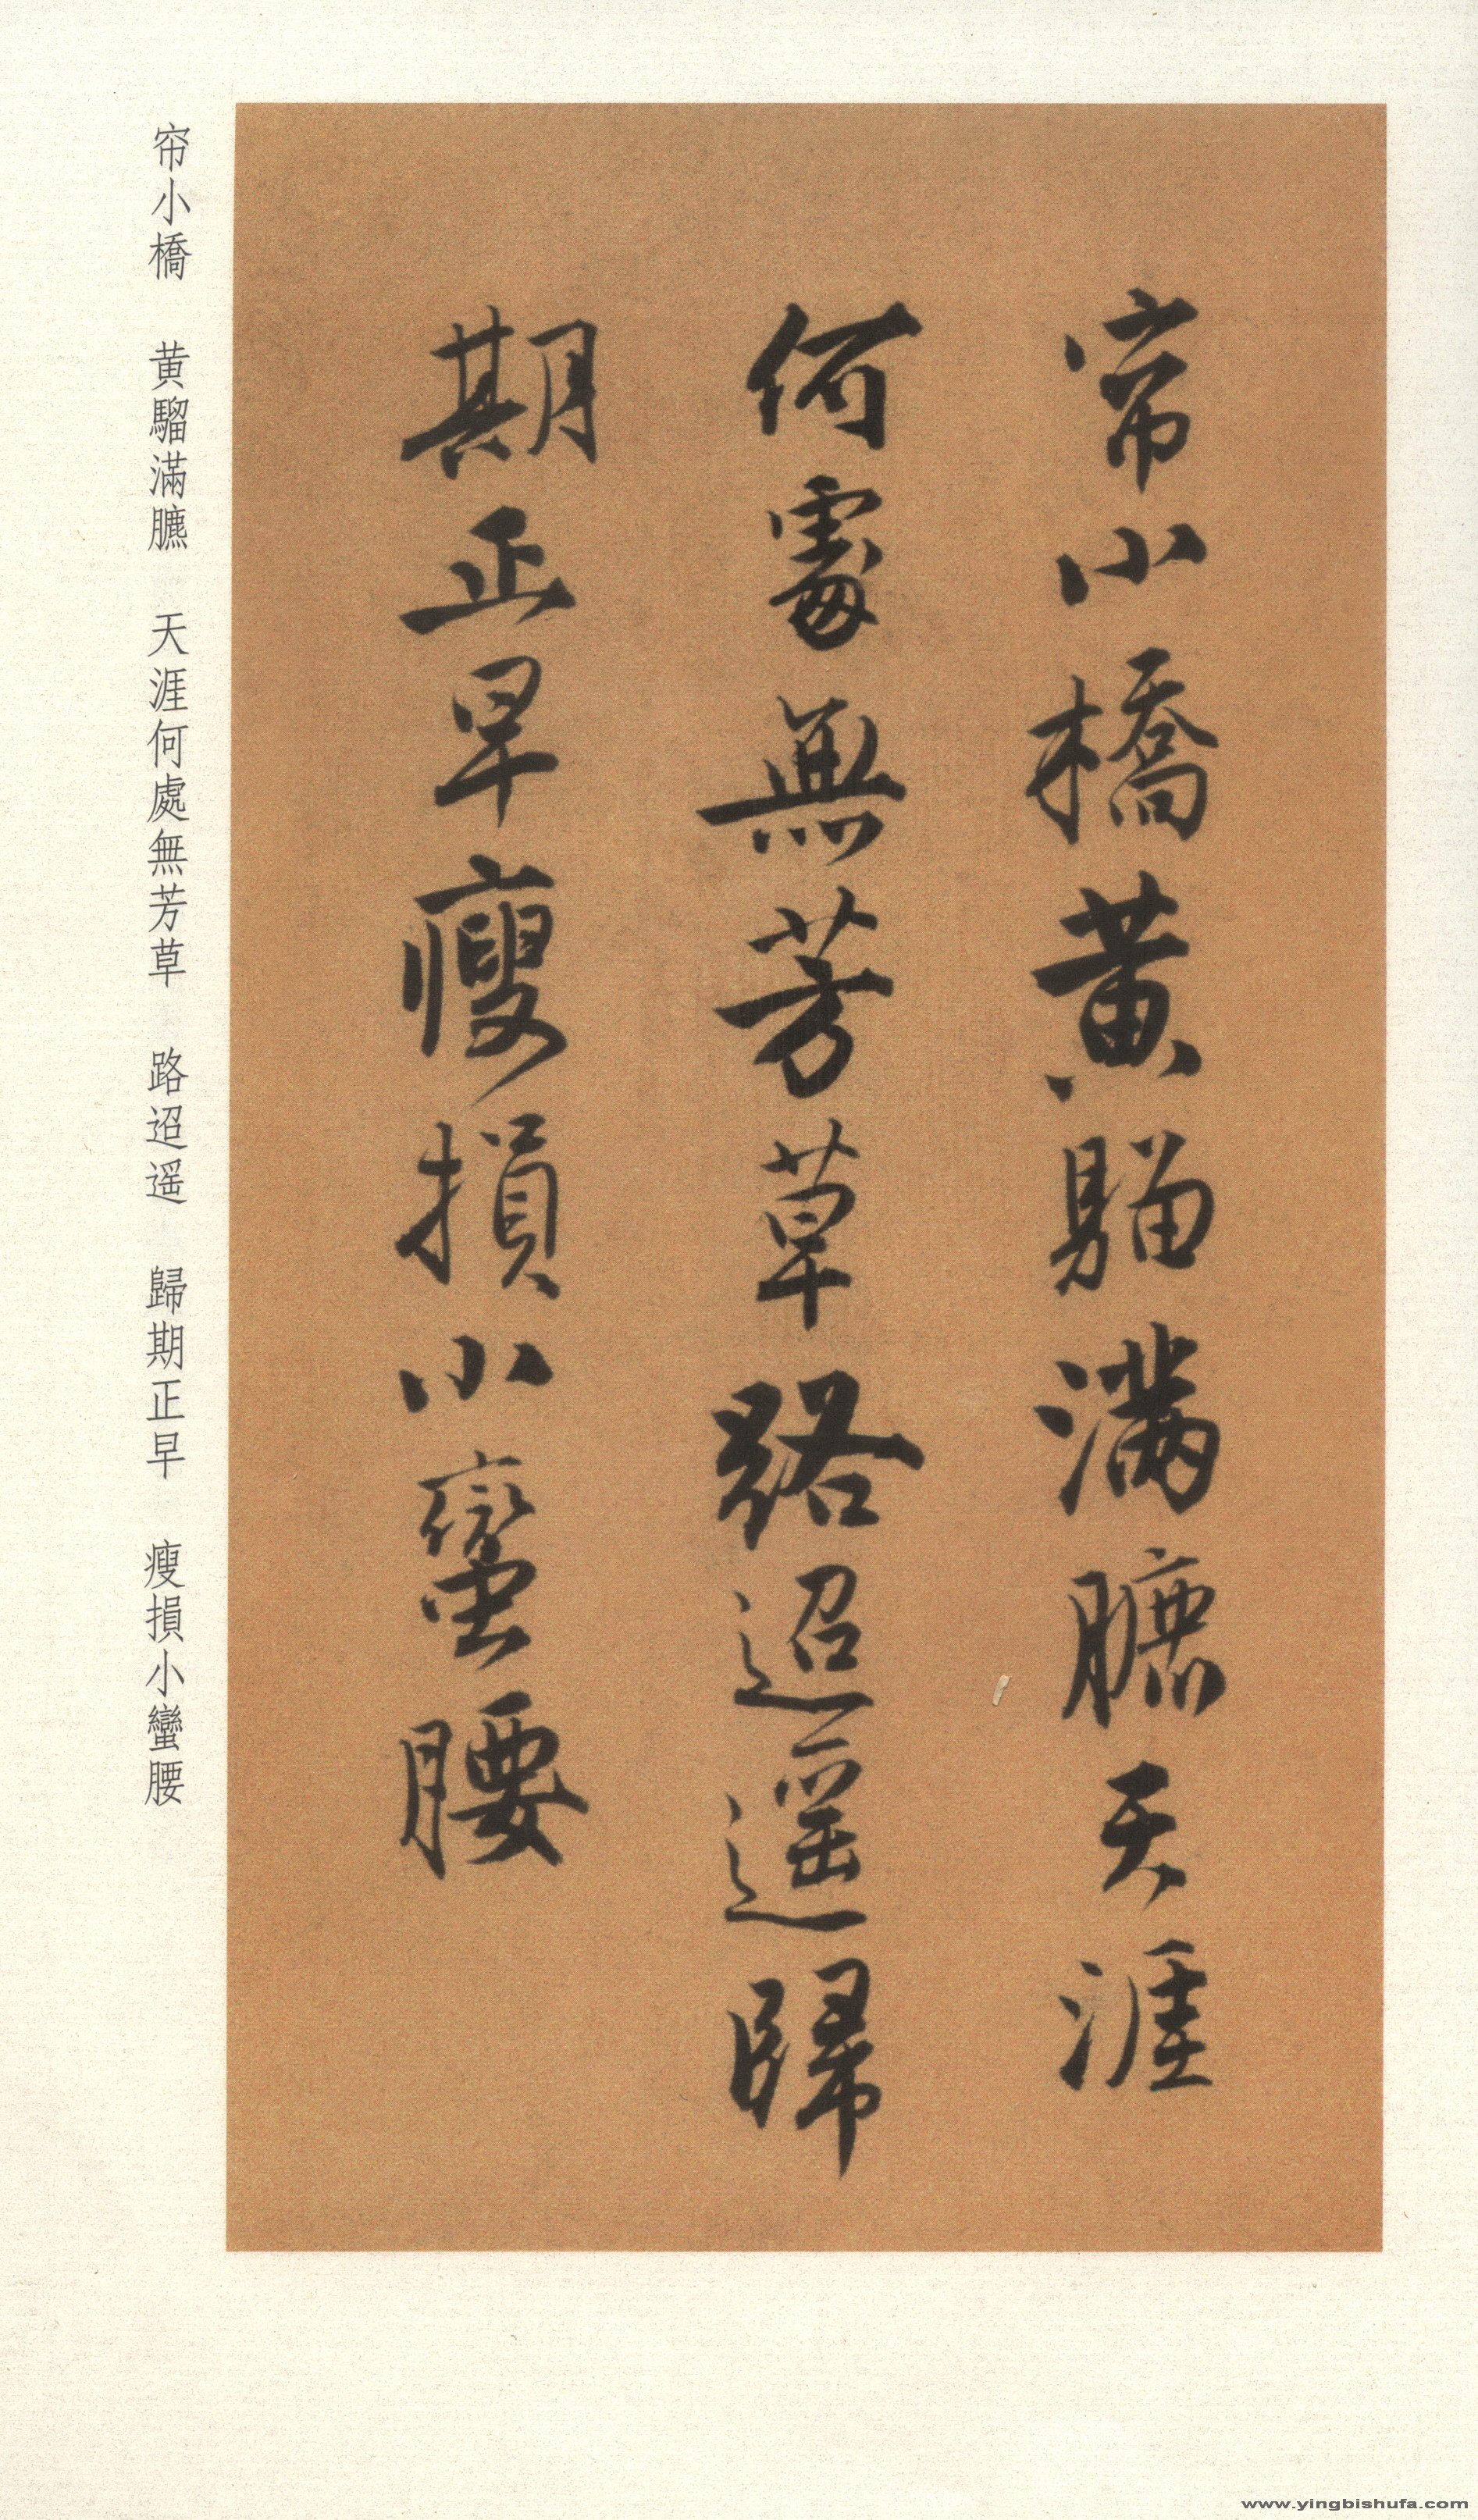 帘小橋黄騮滿臕天涯
何處無芳草路迢遥歸
期正早瘦損小蠻腰
帘小橋　黄騮滿臕　天涯何處無芳草　路迢遥　歸期正早　瘦損小蠻腰
www.yingbishufa.com